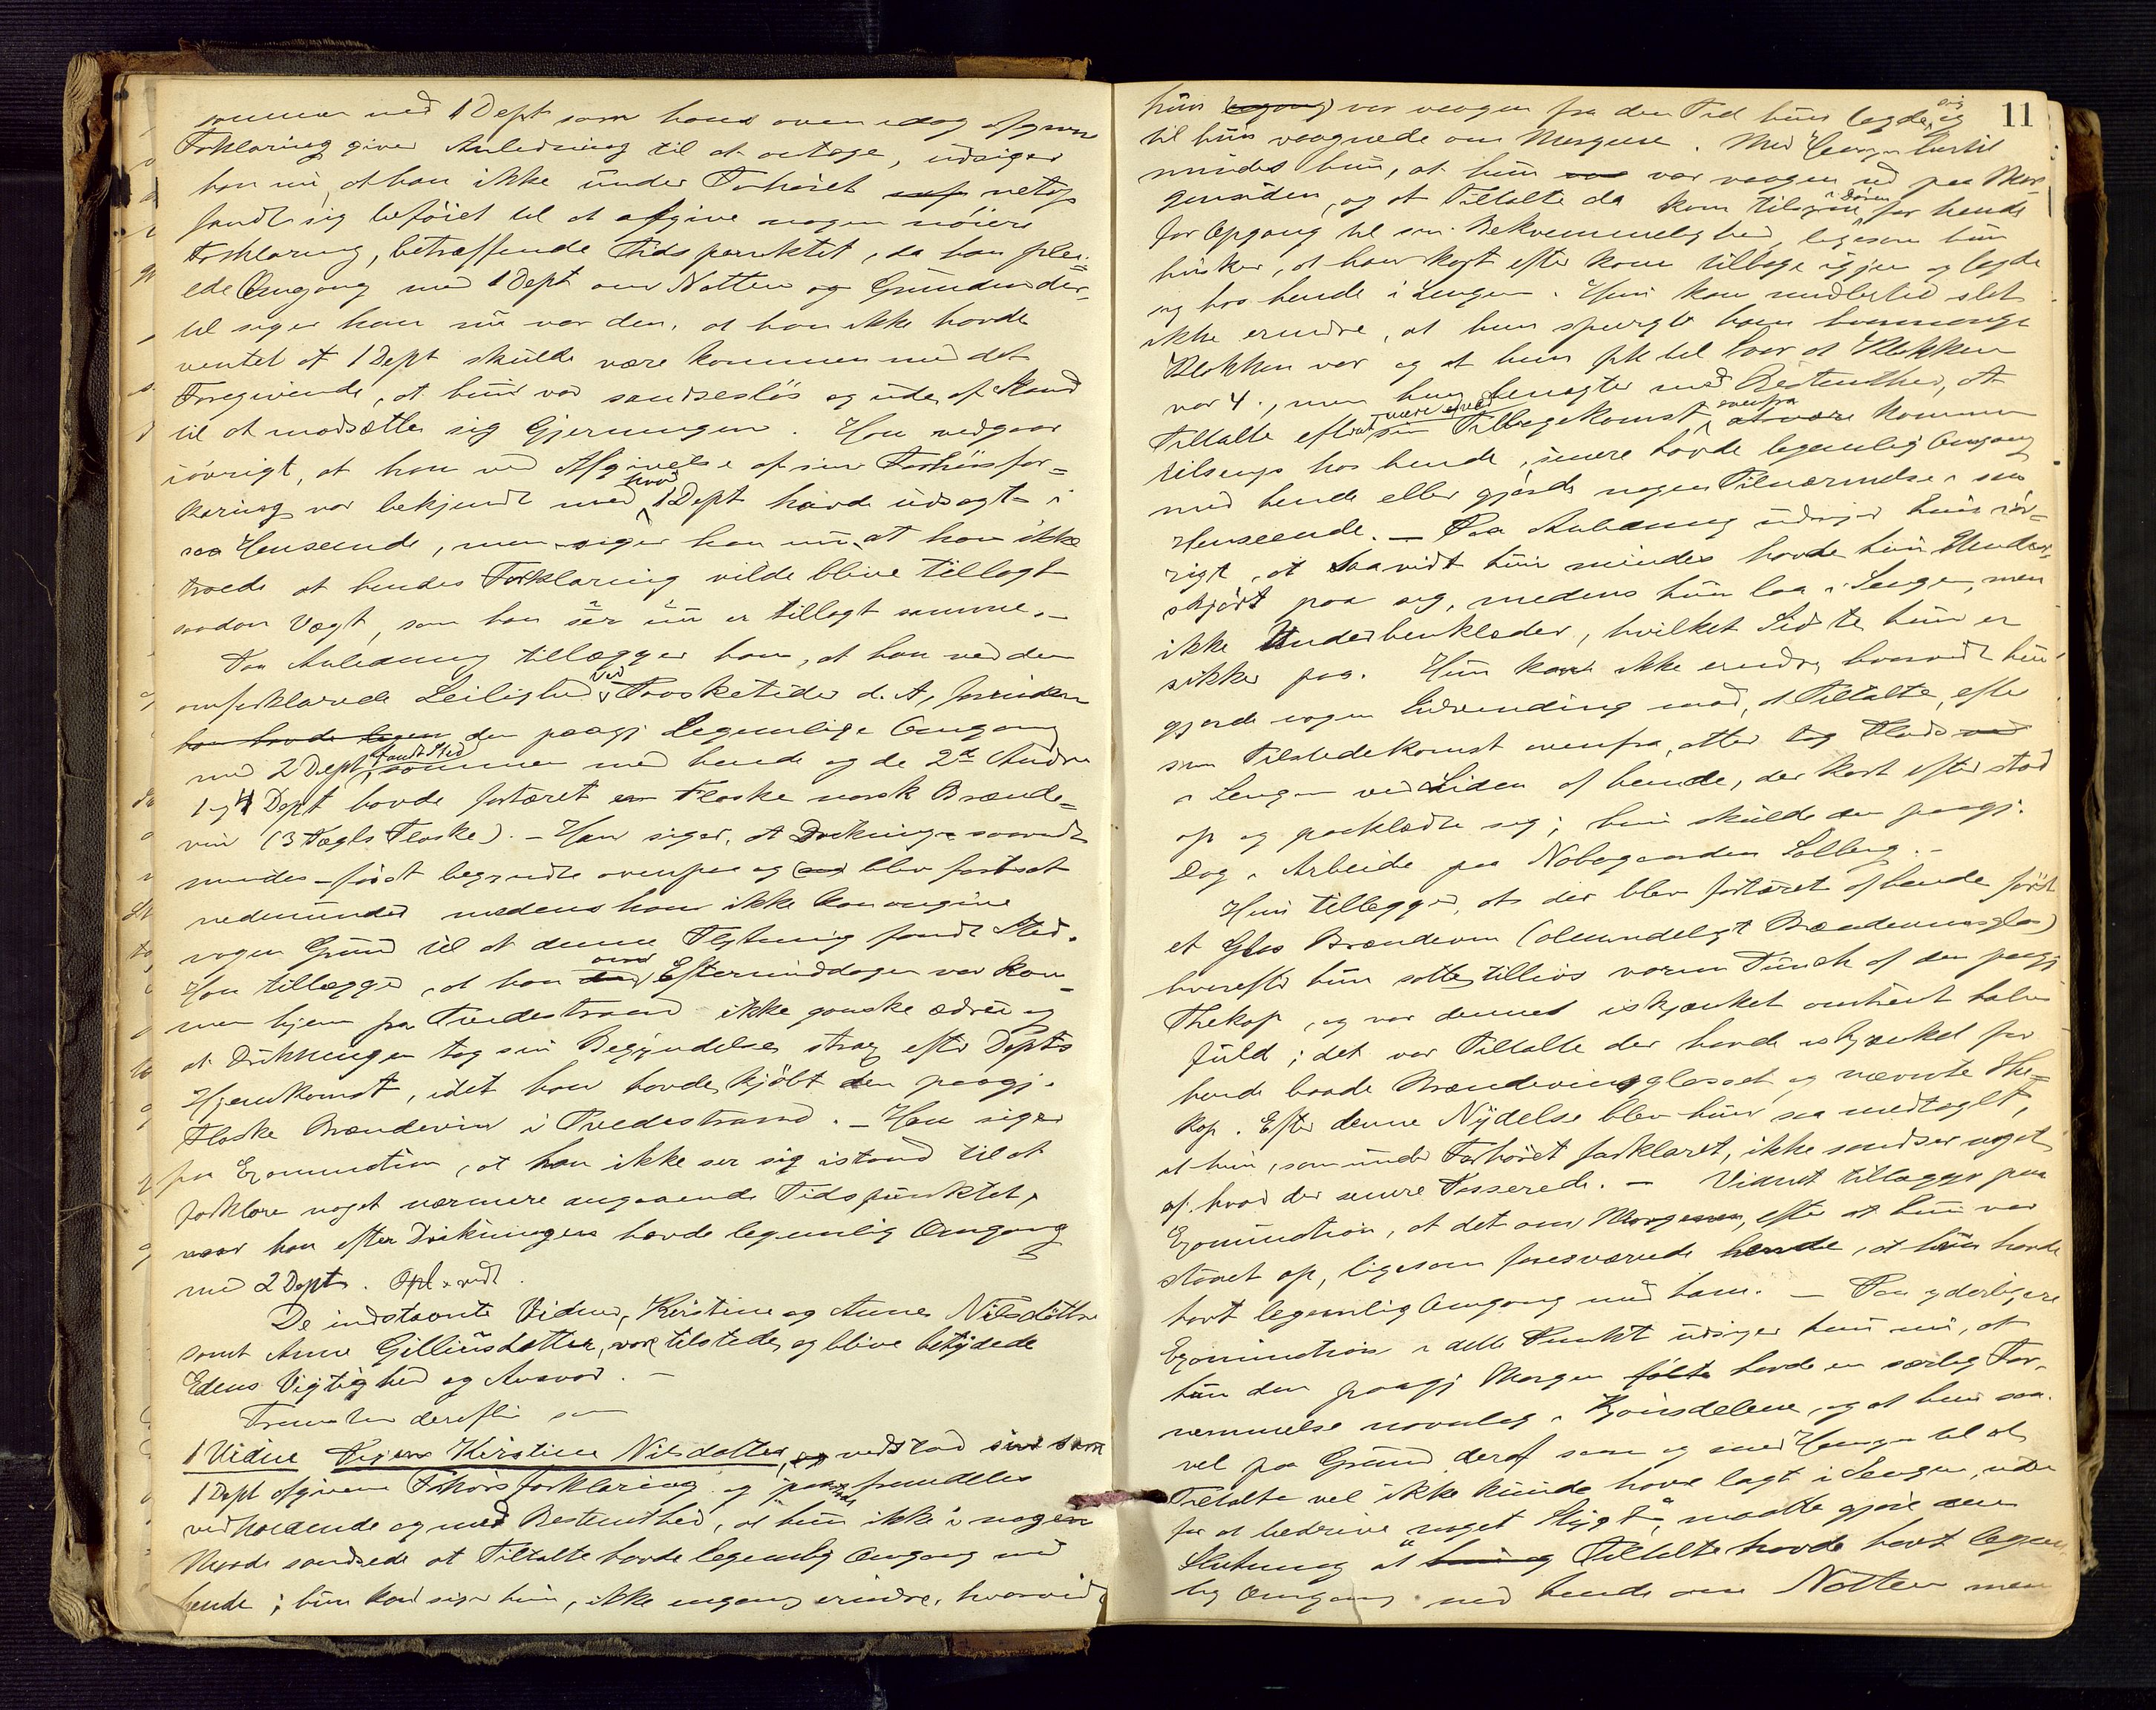 sammen med 1 Dept som hans oven idag afgivne
Forklaring giver Anledning til at antage, udsiger
han nu, at han ikke under Forhøret netop
fandt sig beføiet til at afgive nogen nøiere
Forklaring, betræffende Tidspunktet, da han plei=
ede Omgang med 1 Dept om Natten og Grunden der=
til siger han nu var den, at han ikke havde
ventet at 1 Dept skulde være kommen med det
Foregivende, at hun var sandsesløs og ude af Stand
til at modsætte sig Gjerningen. Han vedgaar
iøvrigt, at han ved Afgivelse af sin Forhørsfor=
klaring var bekjendt med hvad 1 Dept havde udsagt i
saa Henseende, men siger han nu, at han ikke
troede at hendes Forklaring vilde blive tillagt
saadan Vægt, som han ser nu er tillagt samme.—
Paa Anledning tillægger han, at han ved den
omforklarede Leilighed ved Paasketider d. A, forinden
han havde legem den paagj Legemlige Omgang
med 2 Dept, fandt Sted sammen med hende og de 2de Andre
1 og 4 Dept havde fortæret en Flaske norsk Brænde=
vin (3 Pægls Flaske).— Han siger, at Drikningen saavidt
mindes – først begyndte ovenpaa og blev fortsat
nedenunder medens han ikke kan angive
nogen Grund til at denne Flytning fandt Sted.
Han tillægger, at han om Eftermiddagen var kom=
men hjem fra Tvedestrand ikke ganske ædru og
at Drikningen tog sin Begyndelse strax efter Depts
Hjemkomst, idet han havde kjøbt den paagj.
Flaske Brændevin i Tvedestrand.— Han siger
paa Examination, at han ikke ser sig istand til at
forklare noget nærmere angaaende Tidspunktet,
naar han efter Drikningen havde legemlig Omgang
med 2 Dept. Opl. vedt.
De indstævnte Vidner, Kirstine og Anne Nilsdøttre
samt Anne Gilliusdatter, var tilstede og blive betydede
Edens Vigtighed og Ansvar.—
Fremstod derefter som
1 Vidne Pigen Kirstine Nilsdatter, og vedstod sin som
1 Dept afgivne Forhørsforklaring og paastod fremdeles
vedholdende og med Bestemthed, at hun ikke i nogen
Maade sandsede at Tiltalte havde legemlig Omgang med
hende; hun kan siger hun, ikke engang erindre, hvorvidt
11
hun (engang) var vaagen fra den Tid hun lagde sig og
til hun vaagnede om Morgenen. Med Hensyn hertil
mindes hun, at hun var vaagen ud paa Mor=
gensiden, og at Tiltalte da kom tilsyne i Døren for hende
for Opgang til sin Bekvemmelighed, ligesom hun
husker, at han kort efter kom tilbage igjen og lagde
sig hos hende i Sengen. Hun kan imidlertid slet
ikke erindre, at hun spurgte ham hvormange
Klokken var og at hun fik til Svar at Klokken
var 4., men hun benægter med Bestemthed, at
Tiltalte efter at være efter sin Tilbagekomst ovenfra at være kommen
tilsengs hos hende, senere havde legemlig Omgang
med hende eller gjorde nogen Tilnærmelse i saa
Henseende.— Paa Anledning udsiger hun iøv=
rigt, at saavidt hun mindes havde hun Under=
skjørt paa sig, medens hun laa i Sengen, men
ikke Underbenklæder, hvilket Sidste hun er
sikker paa. Hun kan ikke erindre hvorvidt hun
gjorde nogen Indvending mod, at Tiltalte, efter
sin Tilstedekomst ovenfra, atter tog Plads
i Sengen ved Siden af hende, der kort efter stod
op og paaklædte sig; hun skulde den paagj.
Dag i Arbeide paa Nabogaarden Solberg.—
Hun tillægger, at der blev fortæret af hende først
et Glas Brændevin (almindeligt Brændevinsglas)
hvorefter hun satte tillivs varm Punch af den paagj
Thekop, og var denne iskjænket omtrent halv
fuld; det var Tiltalte der havde iskjænket for
hende baade Brændevinsglasset og nævnte The=
kop. Efter denne Nydelse blev hun saa medtaget,
at hun, som under Forhøret forklaret, ikke sandser noget
af hvad der senere Passerede.— Vidnet tillægger paa
Examination, at det om Morgenen, efter at hun var
staaet op, ligesom foresvævede hende, at hun havde
havt legemlig Omgang med ham.— Paa yderligere
Examination i dette Punkt udsiger hun nu, at
hun den paagj Morgen følte havde en særlig For=
nemmelse navnlig i Kjønsdelene, og at hun saa=
vel paa Grund deraf som og med Hensyn til at
Tiltalte vel ikke kunde have lagt i Sengen, uden
for at bedrive noget Stygt, maatte gjøre den
Slutning at Tiltalte havde havt legem=
lig Omgang med hende om Natten men